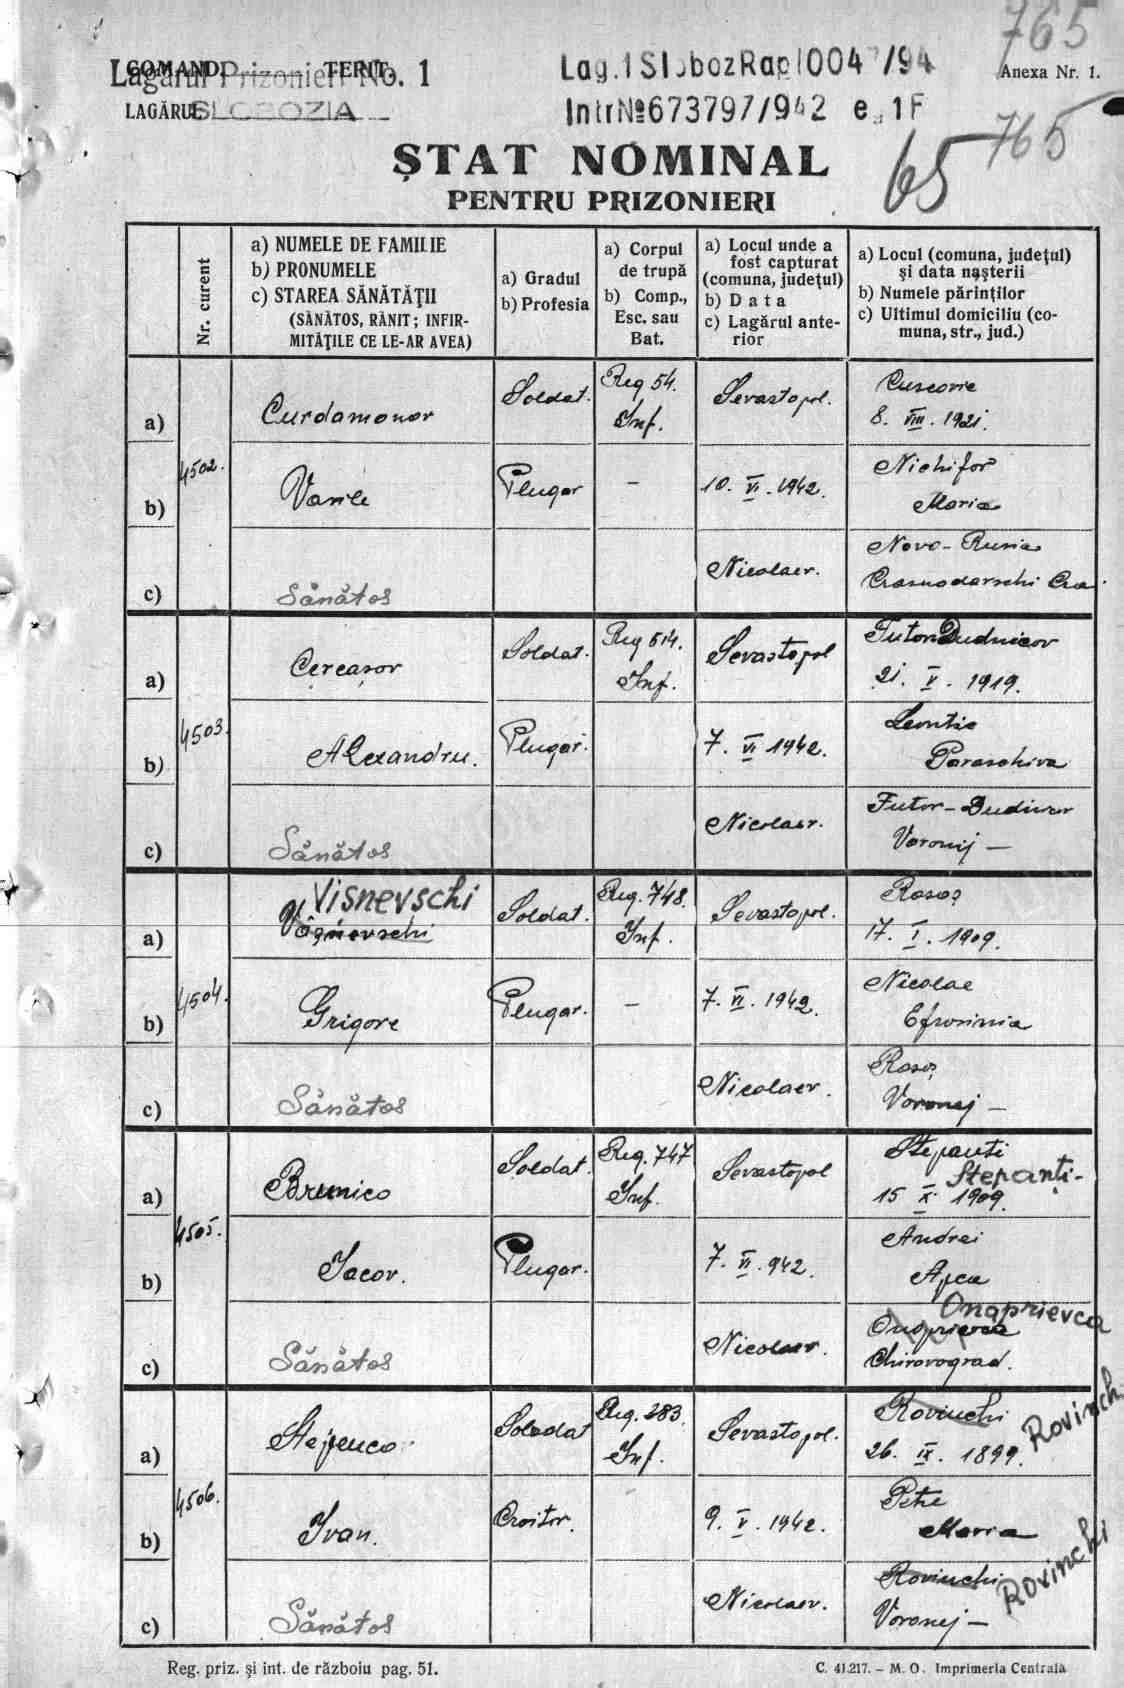 765
COMAND. TERIT.
Lagărul Prizonieri No. 1
LAGĂRUL SLOBOZIA
Lag. 1 Sloboz Rap 10047/94
Intr № 673797/942 e. 1F
Anexa Nr. 1.
765
65
ȘTAT NOMINAL
PENTRU PRIZONIERI
Nr. curent
a) NUMELE DE FAMILIE
b) PRONUMELE
c) STAREA SĂNĂTĂŢII
(SĂNĂTOS, RĂNIT; INFIR-
MITĂŢILE CE LE-AR AVEA)
a) Gradul
b) Profesia
a) Corpul
de trupă
b) Comp.,
Esc. sau
Bat.
a) Locul unde a
fost capturat
(comuna, judeţul)
b) Data
c) Lagărul ante-
rior
a) Locul (comuna, judeţul)
şi data naşterii
b) Numele părinţilor
c) Ultimul domiciliu (co-
muna, str., jud.)
4502.
a) Curdamonov
Soldat.
Reg 54.
Inf.
Sevastopol.
8. VIII. 1921.
b) Vasile
Plugar
–
10. VI. 1942.
Nichifor
Maria
c) Sănătos
Nicolaev.
Novo-Rusia
Crasnodarschi Crai
4503.
a) Cercașov
Soldat.
Reg 514.
Inf.
Sevastopol
Futor Dudnicov
21. V. 1919.
b) Alexandru.
Plugar.
7. VI 1942.
Leontie
Paraschiva
c) Sănătos
Nicolaev.
Futor-Dudivcov
Voronej –
4504.
Visnevschi
a) Vâșnevschi
Soldat.
Reg. 748.
Inf.
Sevastopol.
Rosoș
17. I. 1909.
b) Grigore
Plugar.
–
7. VI. 1942.
Nicolae
Efrosinia
c) Sănătos
Nicolaev.
Rosoș
Voronej –
4505.
a) Brunico
Soldat.
Reg. 747
Inf.
Sevastopol
Stepanti
Stepanți-
15 X. 1909.
b) Iacov.
Plugar.
7. VI. 942.
Andrei
c) Sănătos
Nicolaev.
Onaprievca
Onoprievca
Chirovograd.
4506.
a) Stepenco
Soldat
Reg. 283.
Inf.
Sevastopol.
Rovinchi
Rovinchi
26. IX. 1899.
b) Ivan.
Croitor.
9. V. 1942.
Petre
Maria
c) Sănătos
Nicolaev.
Rovinchi
Rovinchi
Voronej –
Reg. priz. şi int. de războiu pag. 51.
C. 41.217. – M. O. Imprimeria Centrală